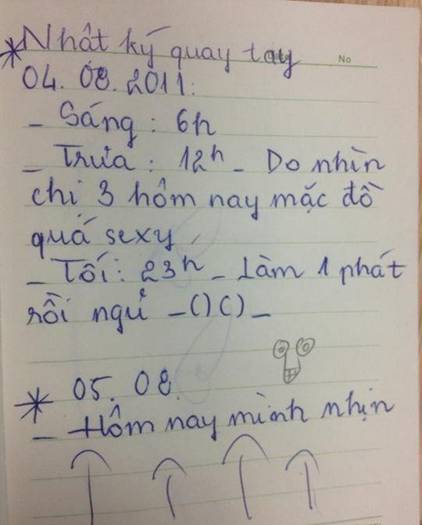 * Nhất ký quay tay
No
04.08.2011:
- Sáng: 6h
- Trưa: 12h - Do nhìn
chị 3 hôm nay mặc đồ
quá sexy
- Tối: 23h - Làm 1 phát
rồi ngủ -()()-
* 05.08
- Hôm nay mình nhịn